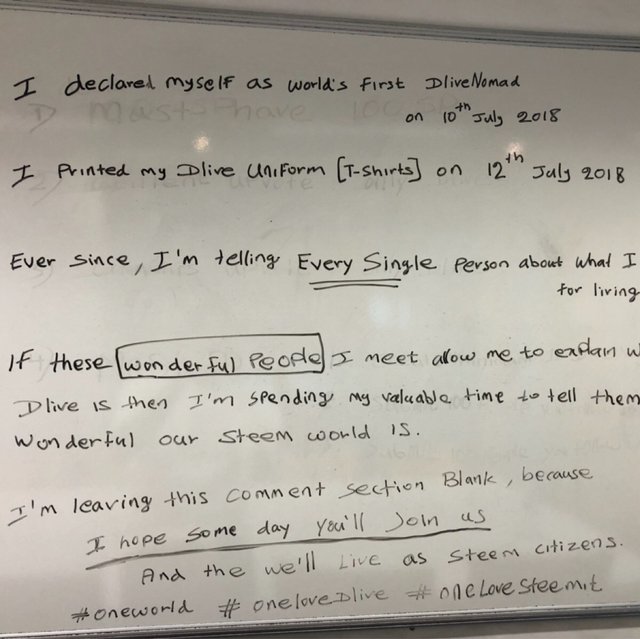 I declared myself as world's First DliveNomad
on 10th July 2018
I Printed my Dlive UniForm [T-Shirts] on 12th July 2018
Ever since, I'm telling Every Single Person about what I
for living
If these wonderful People I meet allow me to explain w
Dlive is then I'm spending my valuable time to tell them
Wonderful our Steem world is.
I'm leaving this comment section Blank, because
I hope some day you'll Join us
And the we'll Live as Steem citizens.
#oneworld # oneloveDlive # oneLoveSteemit